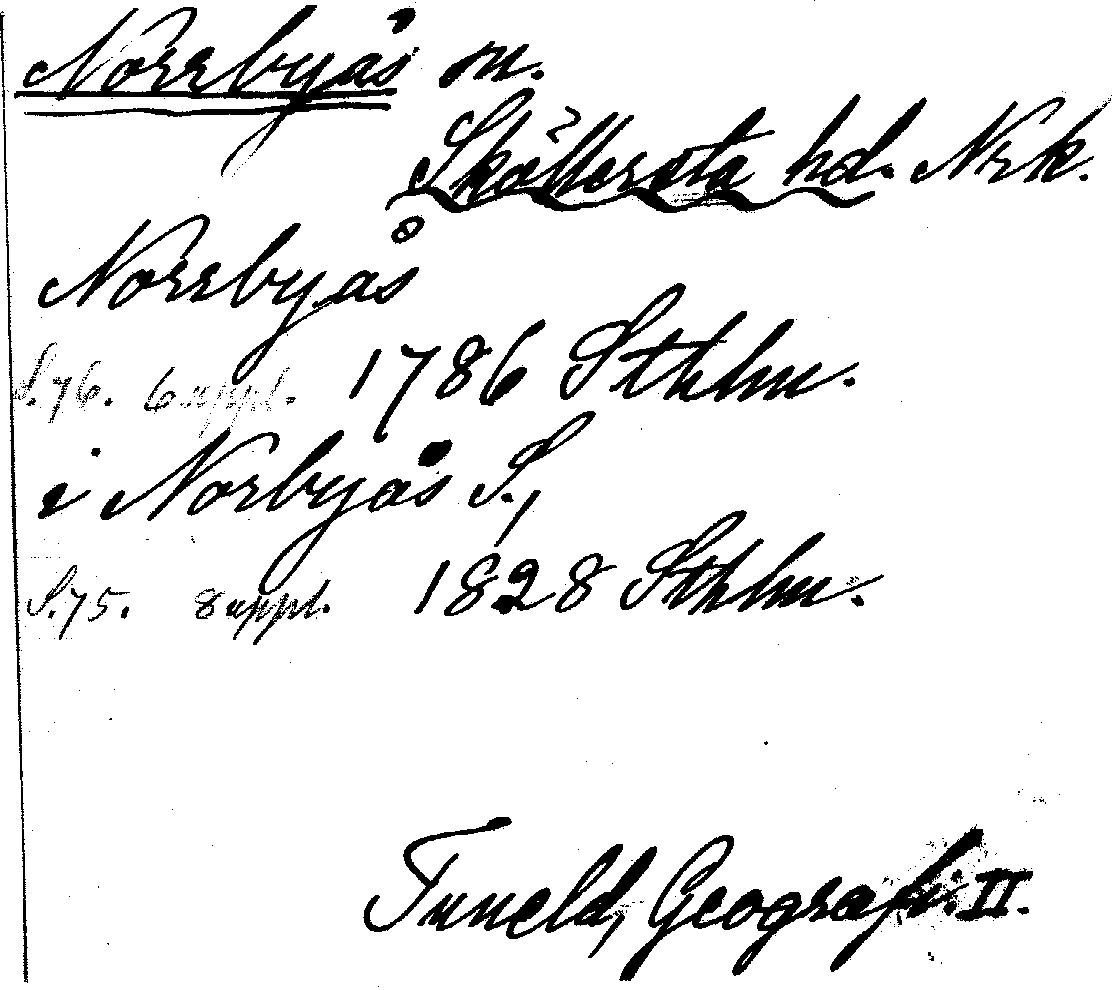 Norrbyås sn.
Sköllersta hd. Nrk.
Norrbyås
S.76. 6 uppl. 1786 Sthlm.
i Norbyås S.,
S.75. 8 uppl. 1828 Sthlm.
Tuneld, Geografi. II.